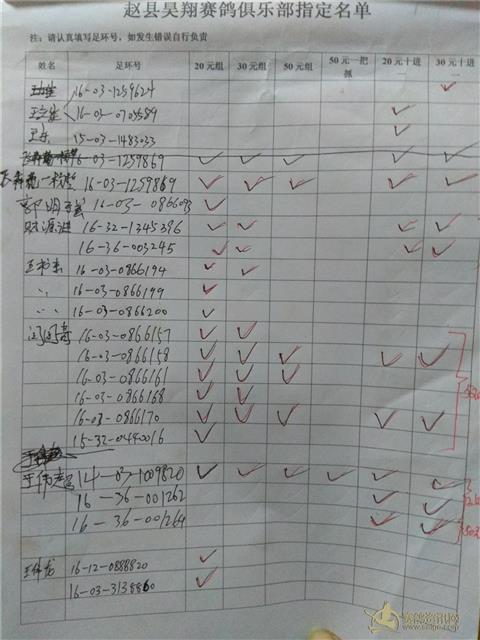 赵县昊翔赛鸽俱乐部指定名单
注：请认真填写足环号，如发生错误自行负责
姓名 足环号 20元组 30元组 50元组 50元一把抓 20元十进一 30元十进一
16-03-1259624
16-03-0705589
15-03-1483033
16-03-1259869
16-03-1259869
郭明 16-03-0866093
财源进 16-32-1345396
16-36-003245
16-03-0866194
〃 16-03-0866199
〃 16-03-0866200
16-03-0866157
16-03-0866158
16-03-0866161
16-03-0866168
16-03-0866170
15-32-0440016
王伟 14-03-1009820
16-36-001262
16-36-001264
王伟龙 16-12-0888820
16-03-3138860